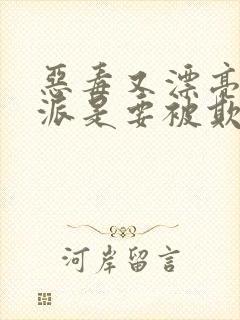 惡毒又漂亮
派是要被欺
河岸留言